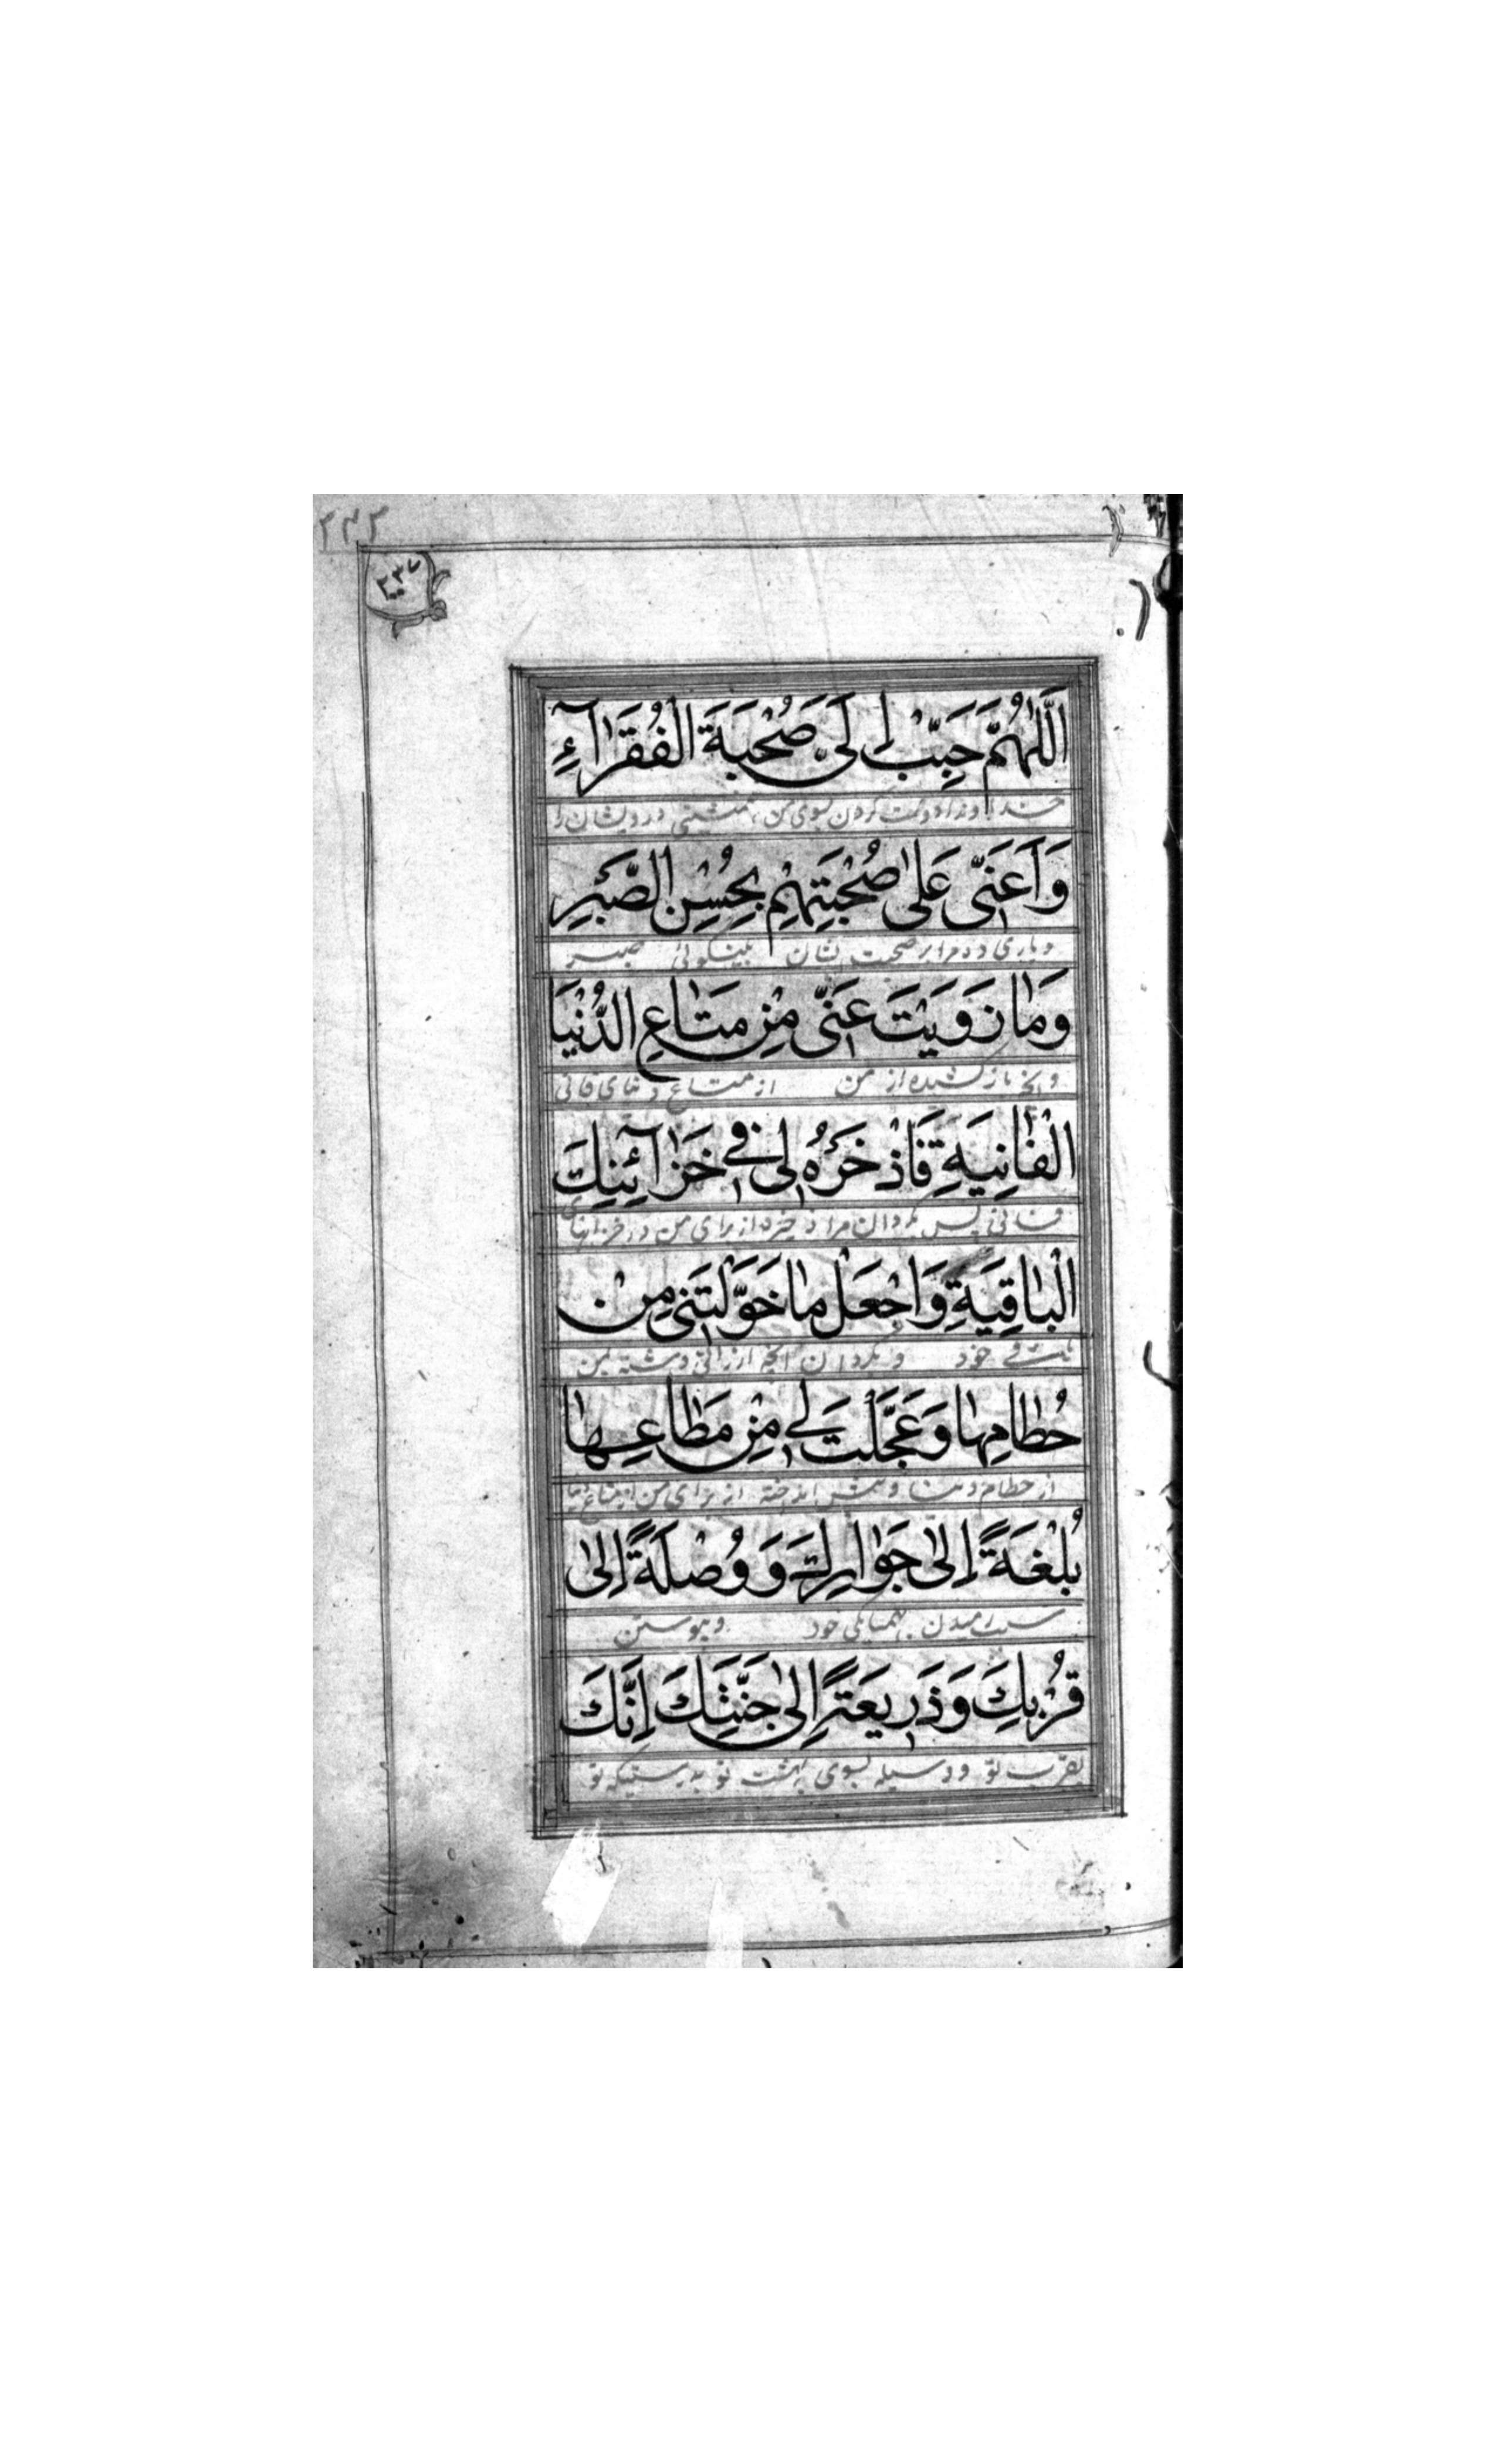 ۲۴۳
۲۳۷
اَللّٰهُمَّ حَبِّبْ اِلَىَّ صُحْبَةَ الْفُقَرٰآءِ
خداوندا دوست گردان بسوی من همنشینی درویشان را
وَاَعِنّى عَلىٰ صُحْبَتِهِمْ بِحُسْنِ الصَّبْرِ
و یاری ده مرا بر صحبت ایشان بنیکوئی صبر
وَمٰا زَوَيْتَ عَنّى مِنْ مَتٰاعِ الدُّنْيَا
و آنچه باز کشیده از من از متاع دنیای فانی
الْفٰانِيَةِ فَاذْخَرْهُ لى فى خَزٰآئِنِكَ
فانی پس بگردان مرا ذخیره از برای من در خزانهای
الْبٰاقِيَةِ وَاجْعَلْ مٰا خَوَّلْتَنى مِنْ
خود و بگردان آنچه ارزانی داشته بمن
حُطٰامِهٰا وَعَجَّلْتَ لى مِنْ مَتٰاعِهٰا
از حطام دنیا و پیش انداخته از برای من از متاع دنیا
بُلْغَةً اِلىٰ جَوٰارِكَ وَوُصْلَةً اِلىٰ
رسیدن بهمسایگی خود و پیوستن
قُرْبِكَ وَذَريعَةً اِلىٰ جَنَّتِكَ اِنَّكَ
بقرب تو و وسیله بسوی بهشت تو بدرستیکه تو